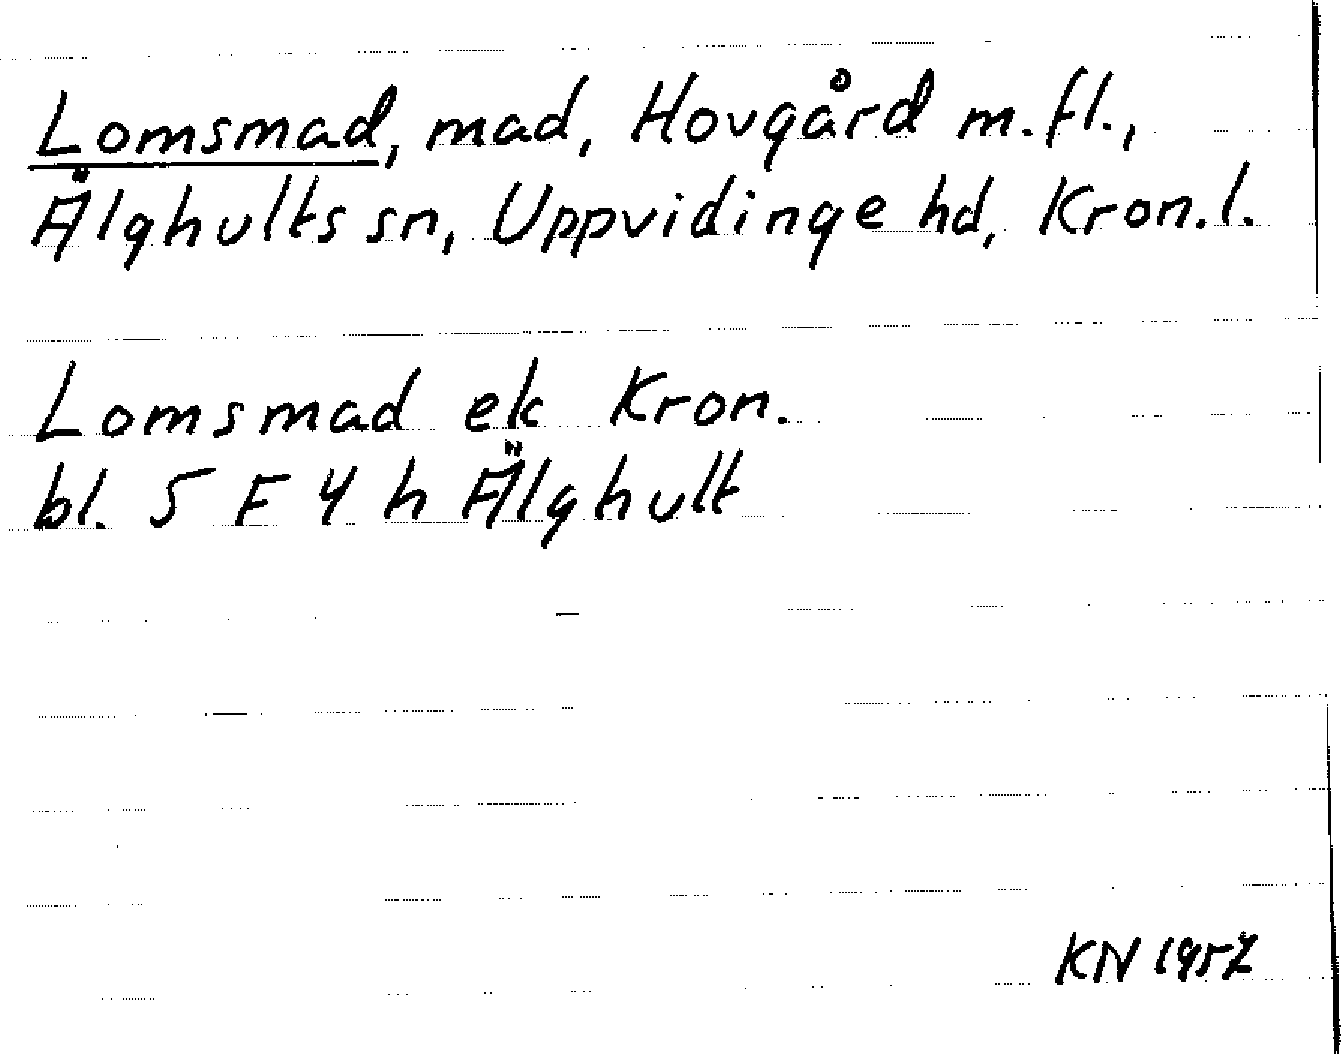 Lomsmad, mad, Hovgård m.fl.,
Älghults sn, Uppvidinge hd, Kron.l.
Lomsmad ek Kron.
bl. 5 F 4 h Älghult
KN 1957